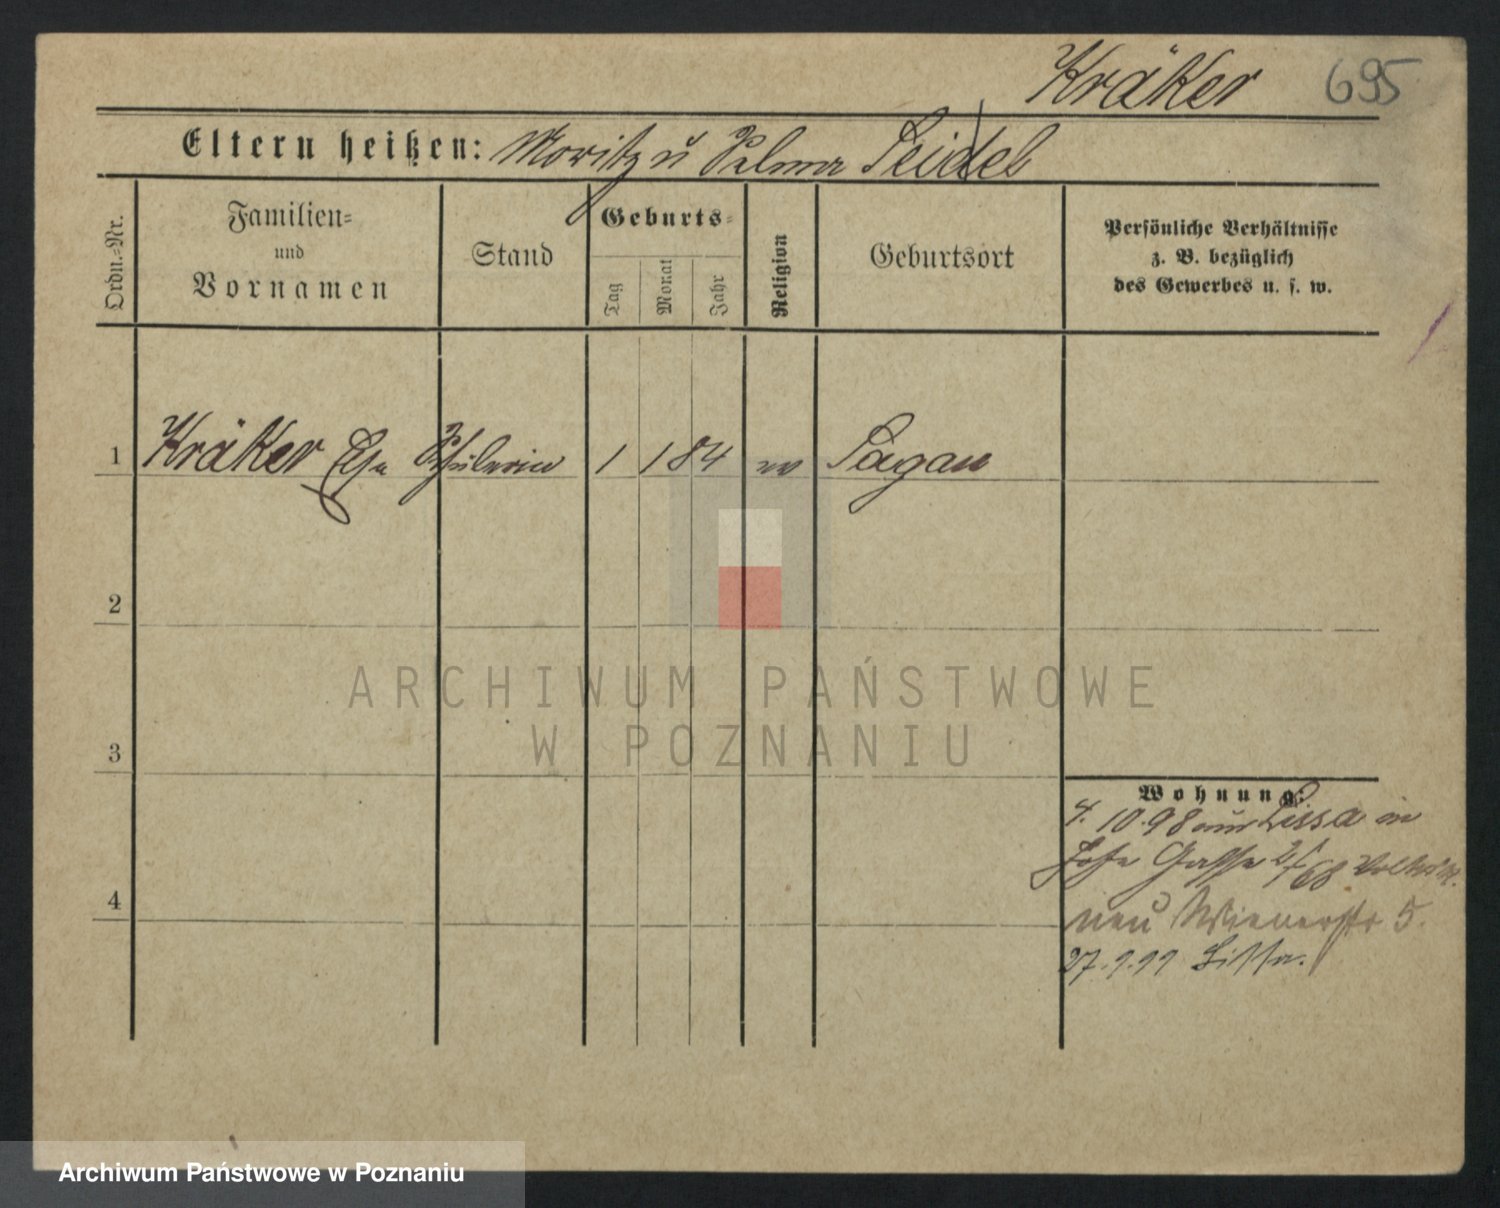 Kräker 695
Eltern heißen: Moritz u Selma Seidel
Ordn.-Nr.
Familien-
und
Vornamen
Stand
Geburts-
Tag
Monat
Jahr
Religion
Geburtsort
Persönliche Verhältnisse
z. B. bezüglich
des Gewerbes u. s. w.
1 Kräker Else Schülerin 1 1 84 ev Sagan
2
3
4
Wohnung:
4. 10. 98 aus Lissa in
Hohe Gasse 2/ 68
neu Wienerstr 5.
27. 9. 99 Lissa.
ARCHIWUM PAŃSTWOWE
W POZNANIU
Archiwum Państwowe w Poznaniu